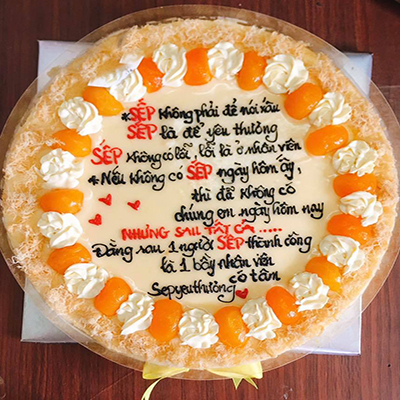 *SẾP không phải để nói xấu
SẾP là để yêu thương
SẾP không có lỗi, lỗi là ở nhân viên
*Nếu không có SẾP ngày hôm ấy,
thì đã không có
chúng em ngày hôm nay
NHƯNG SAU TẤT CẢ.....
Đằng sau 1 người SẾP thành công
là 1 bầy nhân viên
có tâm
Sepyêuthương